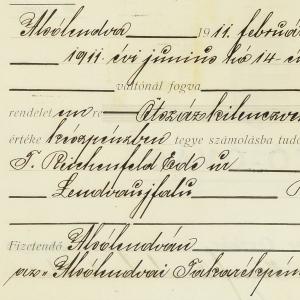 Alsólendva 1911. február
1911 évi junius hó 14-én
váltónál fogva
rendelet, em re Ötszázkilenczve
értéke készpénzben tegye számolásba tudó
T. Reichenfeld Ede ur
Lendvaujfalu
Fizetendő Alsólendván
az „Alsólendvai Takarékpén